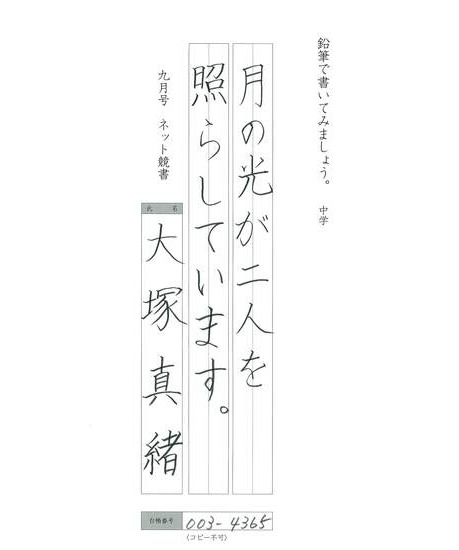 鉛筆で書いてみましょう。 中学
月の光が二人を
照らしています。
九月号 ネット競書
氏 名
大塚真緒
台帳番号
003-4365
(コピー不可)